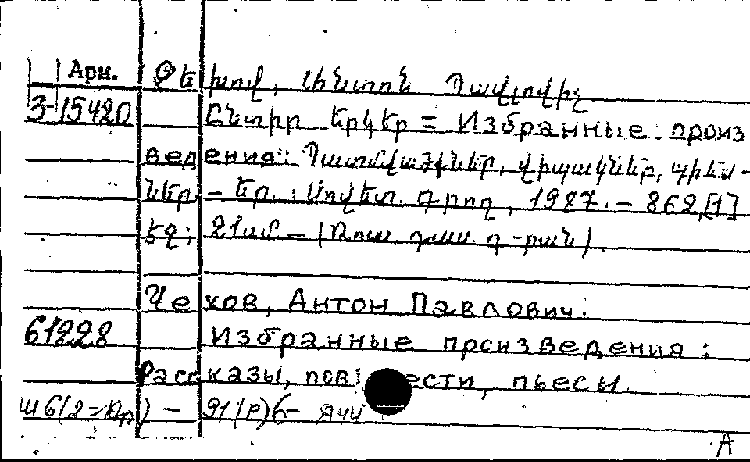 Арм. Չեխով, Անտոն Պավլովիչ
3-15420 Ընտիր երկեր = Избранные произ
ведения: Պատմվածքներ, վիպակներ, պիես-
ներ. - Եր.: Սովետ. գրող, 1987. - 862,[1]
էջ; 21սմ - (Ռուս դաս. գ-րան).
Чехов, Антон Павлович.
61228 Избранные произведения:
Рассказы, повести, пьесы.
- 91(Р)6-
А